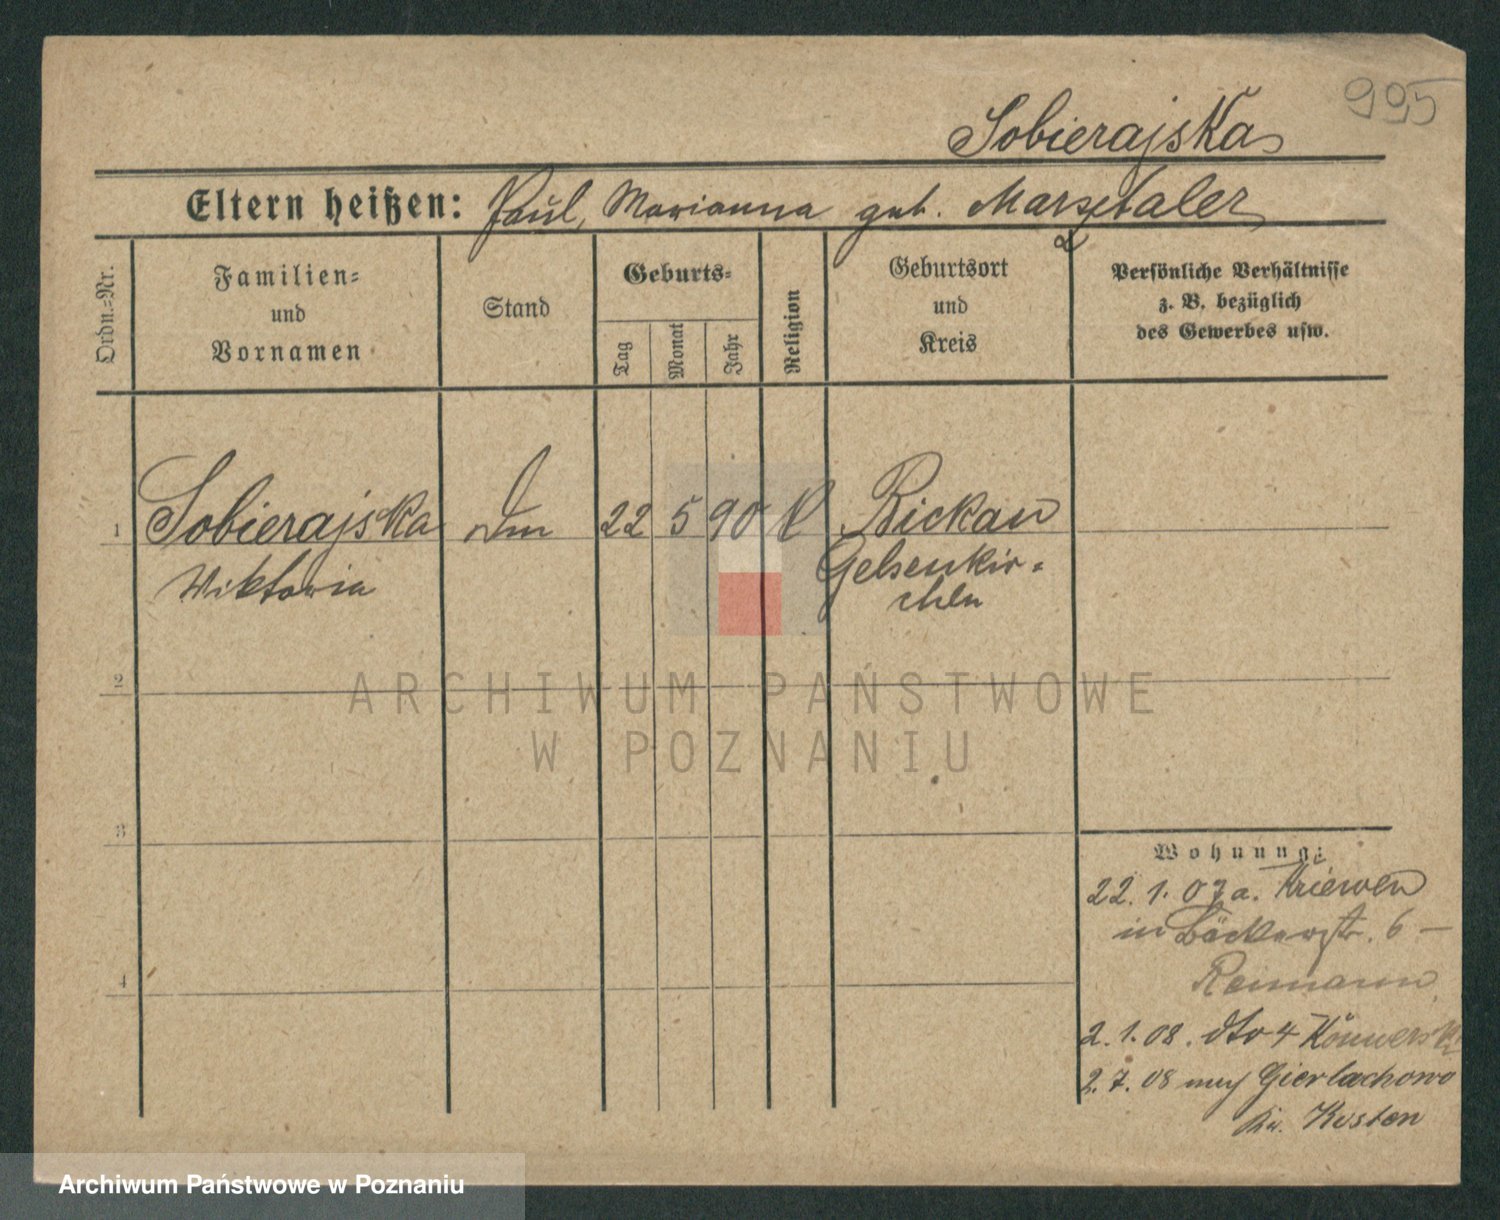 995
Sobierajska
Eltern heißen: Paul, Marianna geb. Marsztaler
Ordn.=Nr.
Familien=
und
Vornamen
Stand
Geburts=
Tag
Monat
Jahr
Religion
Geburtsort
und
Kreis
Persönliche Verhältnisse
z. B. bezüglich
des Gewerbes usw.
1 Sobierajska 22 5 90 K Bickau
Wiktoria Gelsenkir-
chen
2
3
4
Wohnung:
22. 1. 07 a. Kriewen
in Bäckerstr. 6 -
Reimann
2. 1. 08. dto 4
2. 7. 08 nach Gierlachowo
Kr. Kosten
ARCHIWUM PAŃSTWOWE
W POZNANIU
Archiwum Państwowe w Poznaniu